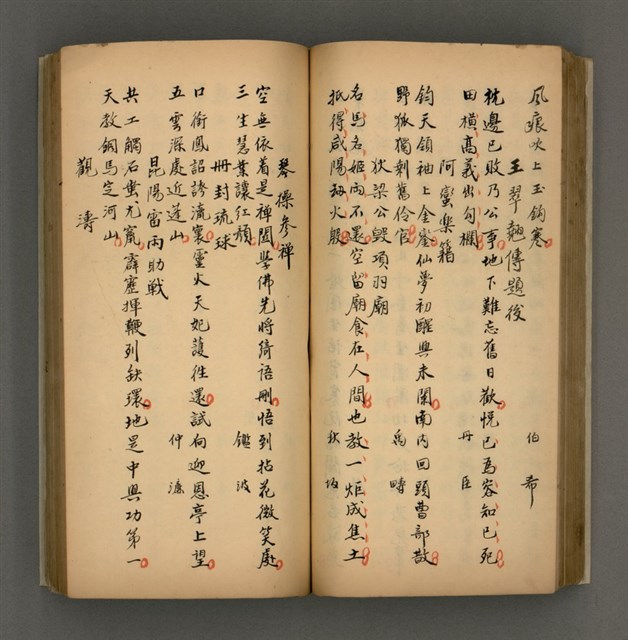 風痕吹上玉鈎寒 伯希
王翠翹傳題後
枕邊已敗乃公事地下難忘舊日歡悦已為容知已死
田橫高義出勾欄 丹臣
阿蠻樂籍
鈞天領袖上金鑾仙夢初醒興未闌南內回頭曹部散
野狐獨剩舊伶官 為疇
狄梁公毀項羽廟
名馬名姬兩不還空留廟食在人間也教一炬成焦土
抵得咸陽劫火殷 秋塏
琴操參禪
空無依着是禪關學佛先將綺語刪悟到拈花微笑處
三生慧業讓紅顏 鑑波
冊封琉球
口銜鳳詔誇流寰靈火天妃護往還試向迎恩亭上望
五雲深處近蓬山 仲濂
昆陽雷雨助戰
共工觸石蚩尤竄霹靂揮鞭列缺環地是中興功第一
天教銅馬定河山
觀濤